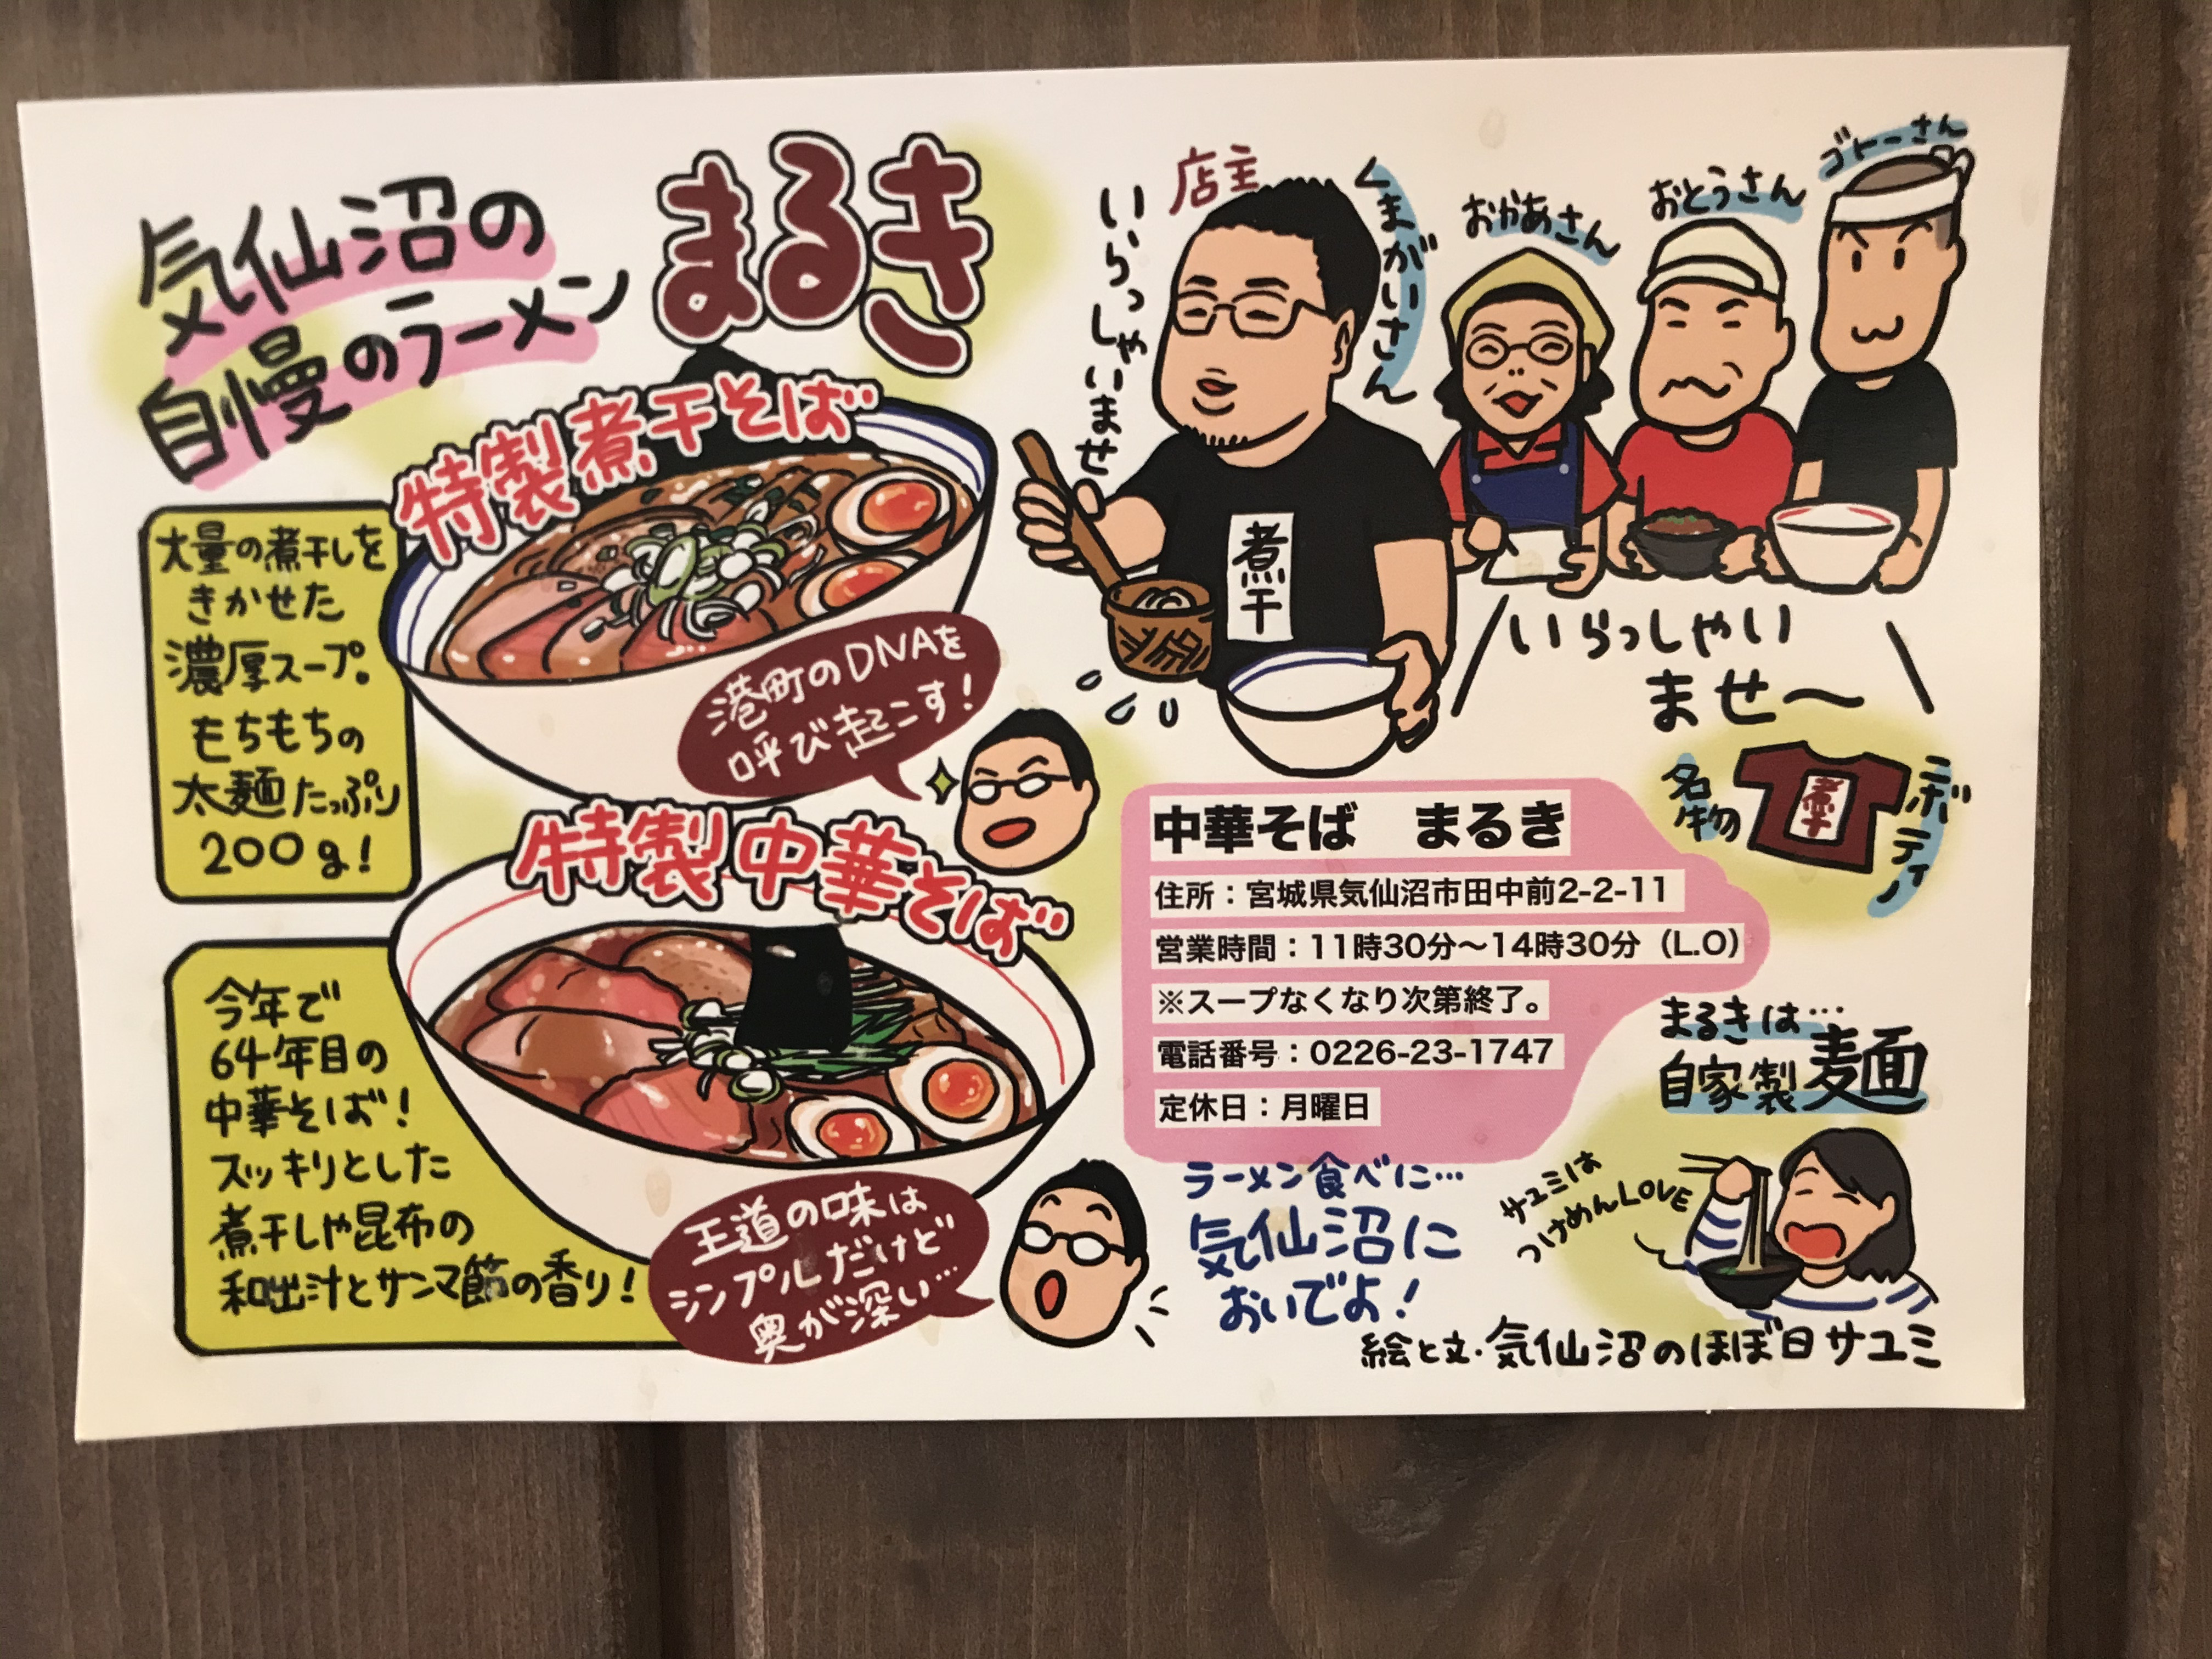 気仙沼の
自慢のラーメン
まるき
特製煮干そば
大量の煮干しを
きかせた
濃厚スープ。
もちもちの
太麺たっぷり
200g!
港町のDNAを
呼び起こす!
特製中華そば
今年で
64年目の
中華そば!
スッキリとした
煮干しや昆布の
和出汁とサンマ節の香り!
王道の味は
シンプルだけど
奥が深い…
店主
くまがいさん
いらっしゃいませ
煮干
おかあさん
おとうさん
ゴトーさん
いらっしゃい
ませ〜
名物
ニボティー
煮干
中華そば　まるき
住所：宮城県気仙沼市田中前2-2-11
営業時間：11時30分〜14時30分（L.O）
※スープなくなり次第終了。
電話番号：0226-23-1747
定休日：月曜日
まるきは…
自家製麺
ラーメン食べに…
気仙沼に
おいでよ!
サユミは
つけめんLOVE
絵と文・気仙沼のほぼ日サユミ